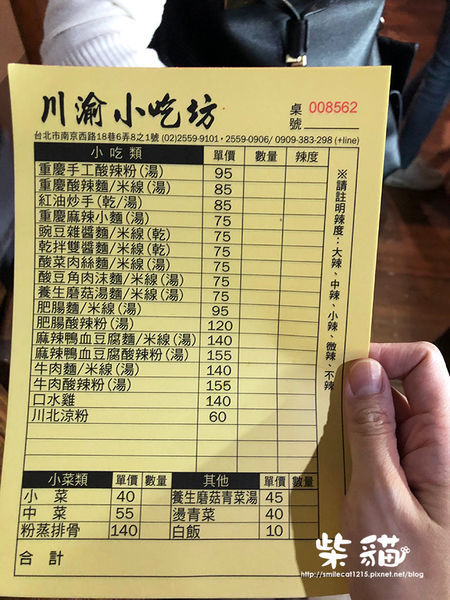 川渝小吃坊
桌號 008562
台北市南京西路18巷6弄8之1號 (02)2559-9101，2559-0906/ 0909-383-298 (+line)
小吃類 單價 數量 辣度
重慶手工酸辣粉(湯) 95
重慶酸辣麵/米線(湯) 85
紅油炒手(乾/湯) 85
重慶麻辣小麵(湯) 75
豌豆雜醬麵/米線(乾) 75
乾拌雙醬麵/米線(乾) 75
酸菜肉絲麵/米線(湯) 75
酸豆角肉沫麵/米線(湯) 75
養生蘑菇湯麵/米線(湯) 75
肥腸麵/米線(湯) 95
肥腸酸辣粉(湯) 120
麻辣鴨血豆腐麵/米線(湯) 140
麻辣鴨血豆腐酸辣粉(湯) 155
牛肉麵/米線(湯) 140
牛肉酸辣粉(湯) 155
口水雞 140
川北涼粉 60
※請註明辣度：大辣、中辣、小辣、微辣、不辣
小菜類 單價 數量 其他 單價 數量
小菜 40 養生蘑菇青菜湯 45
中菜 55 燙青菜 40
粉蒸排骨 140 白飯 10
合計
柴貓
http://smilecat1215.pixnet.net/blog